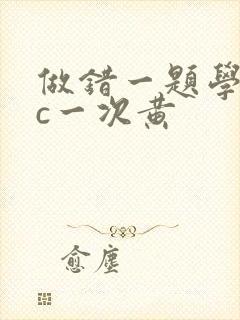 做錯一題學
c一次黃
愈塵